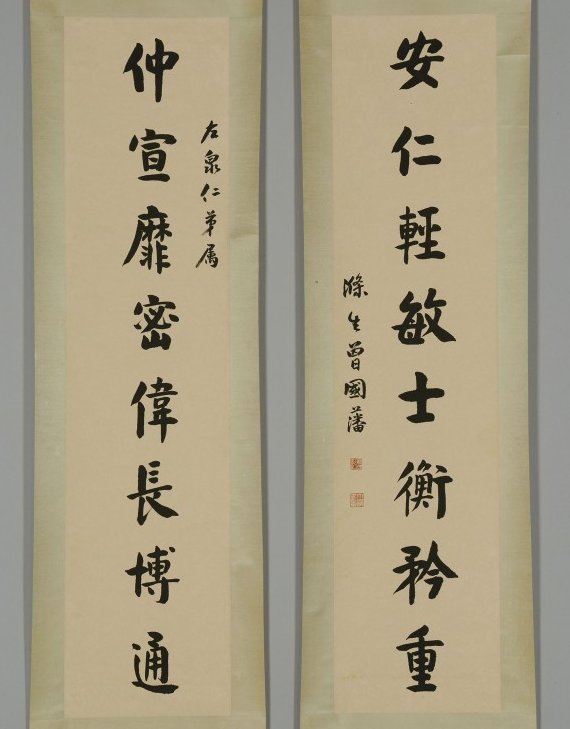 安仁輕敏士衡矜重
滌生曾國藩
左泉仁弟属
仲宣靡密偉長博通